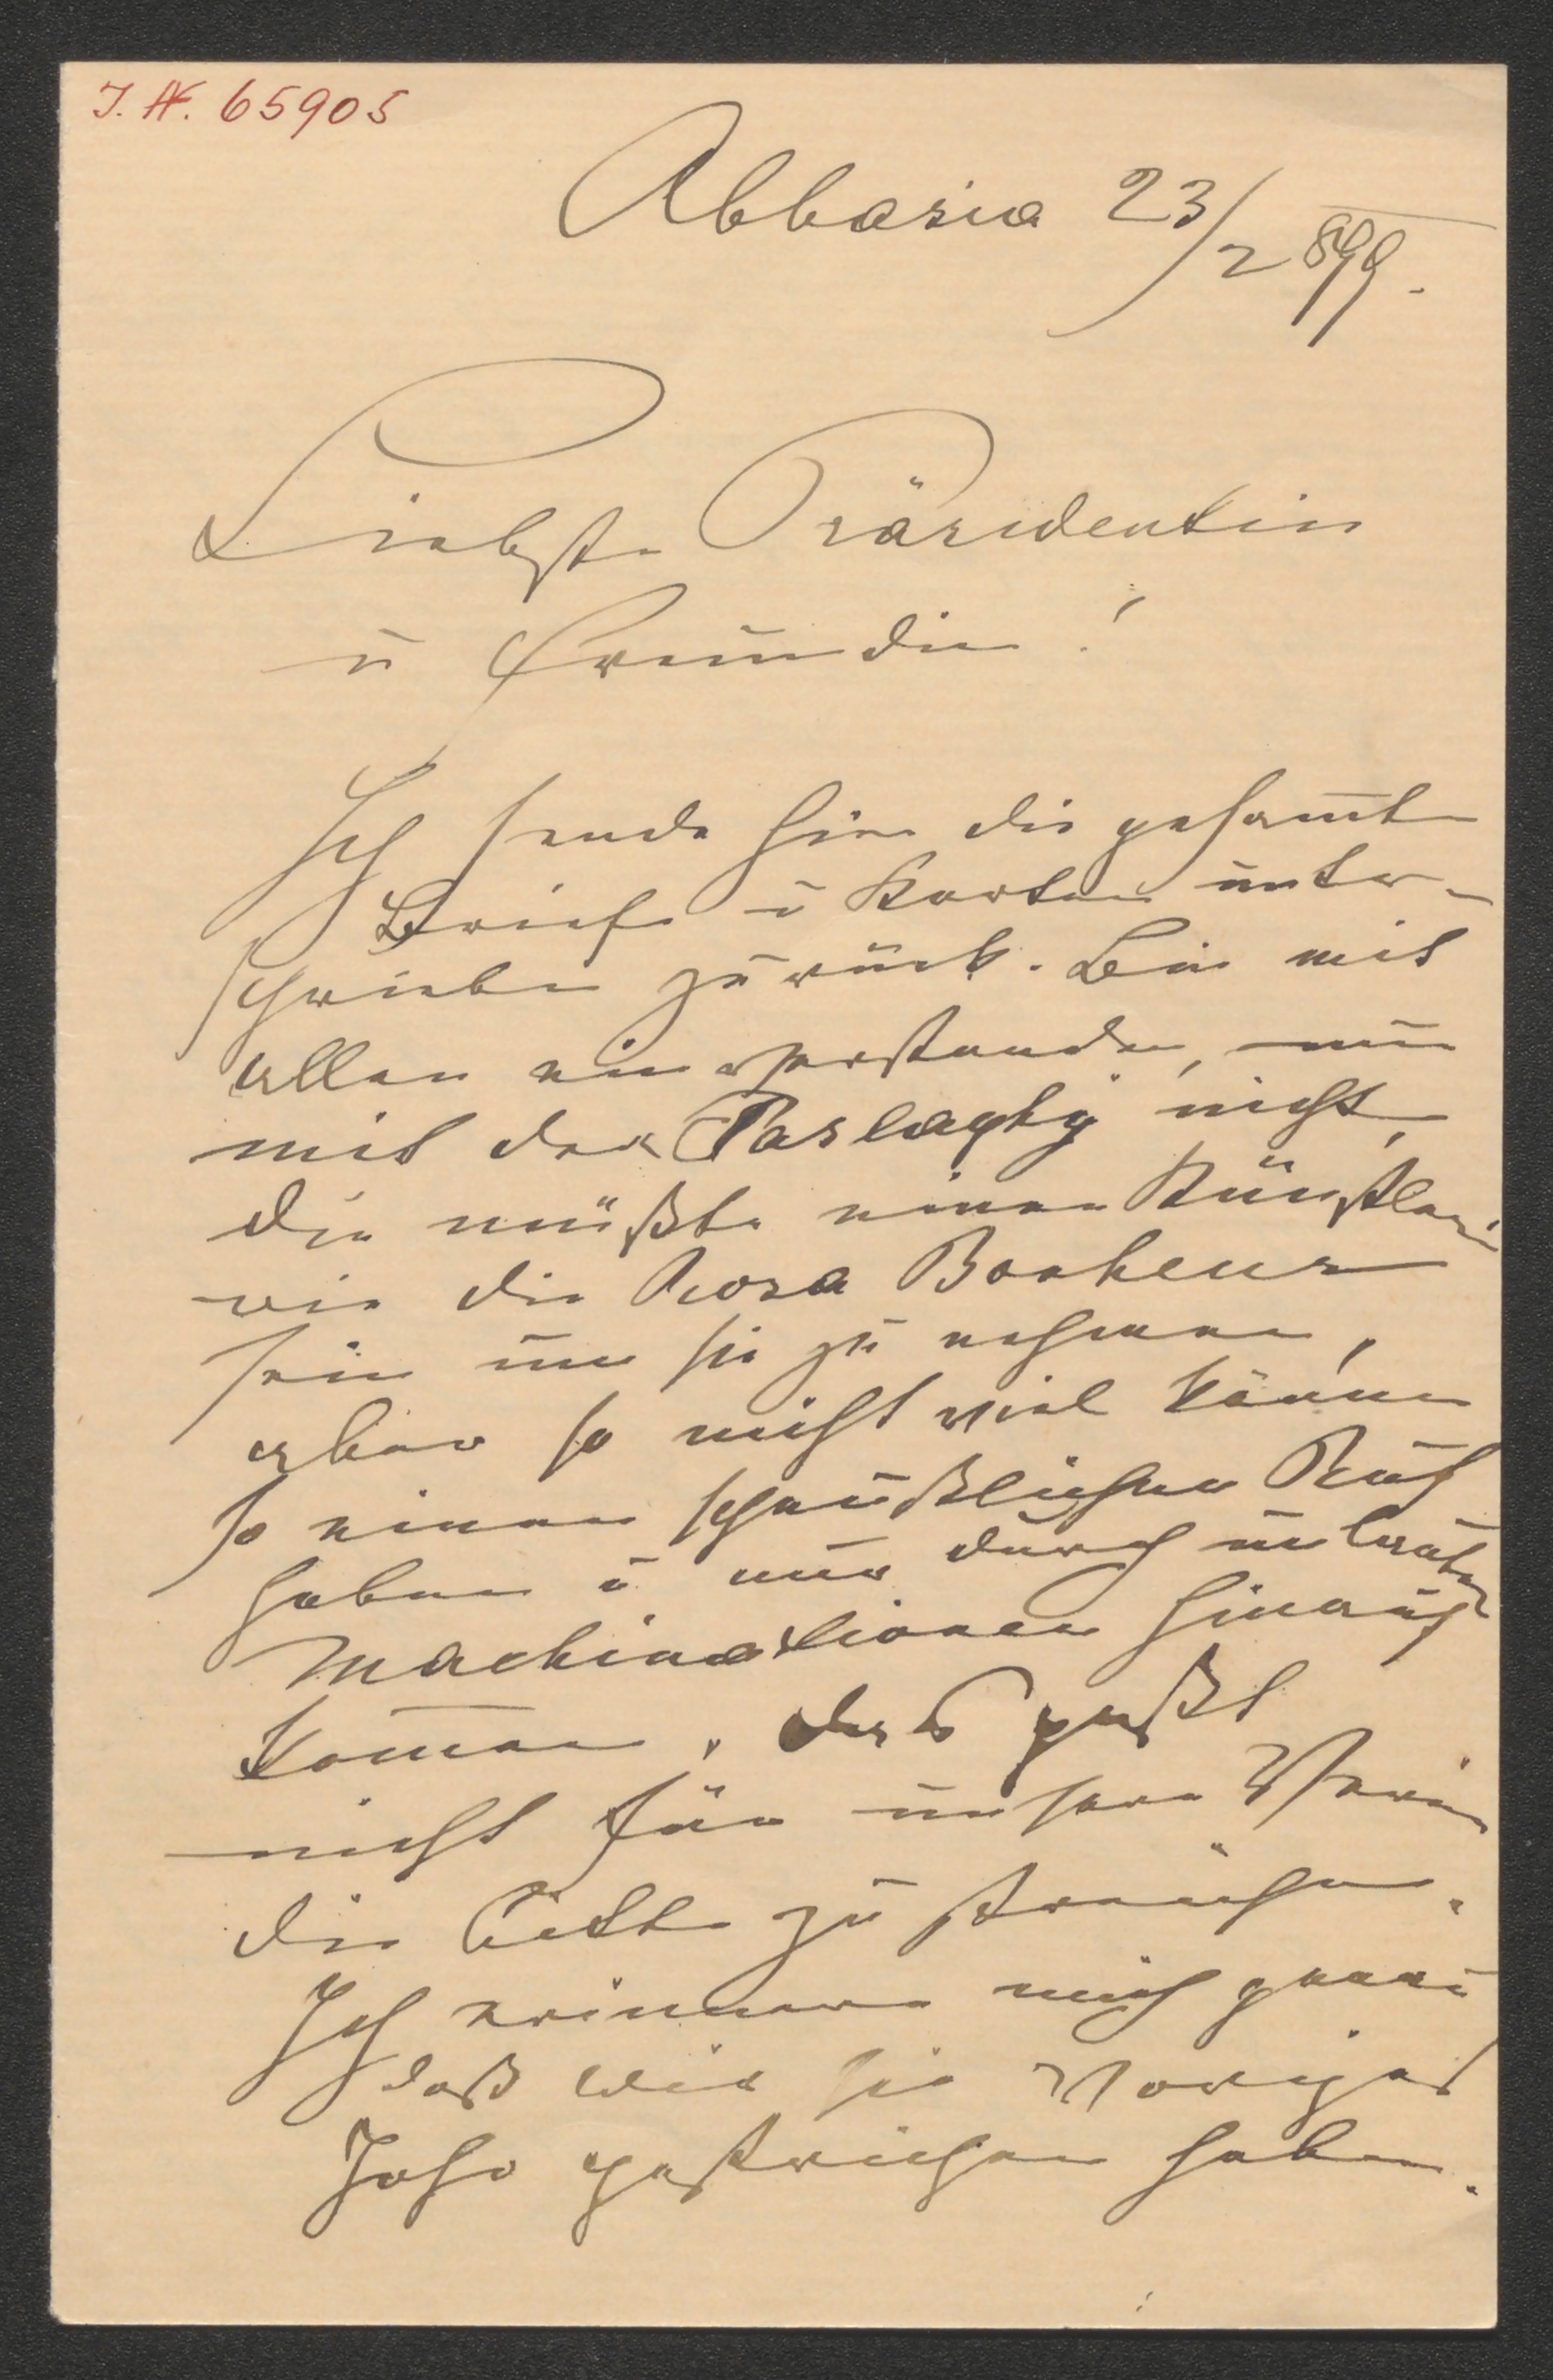 I. N. 65905
Abbasia 23/2 899.
Liebste Präsidentin
u Freundin!
Ich sende hier die gesam̄te
Briefe u Karten unter-
schrieben zurück. Bin mit
allen einverstanden, nur
mit der Parlaghy nicht,
die müßte eine Künstlerin
wie die Rosa Bonheur
sein um sie zu nehmen,
aber so nicht viel können
so einen scheußlichen Ruf
haben u nur durch
Machinationen hinauf
kom̄en, das paßt
nicht für unsern Verein
die zu streichen.
Ich erinnere mich genau
daß wir sie voriges
Jahr gestrichen haben.